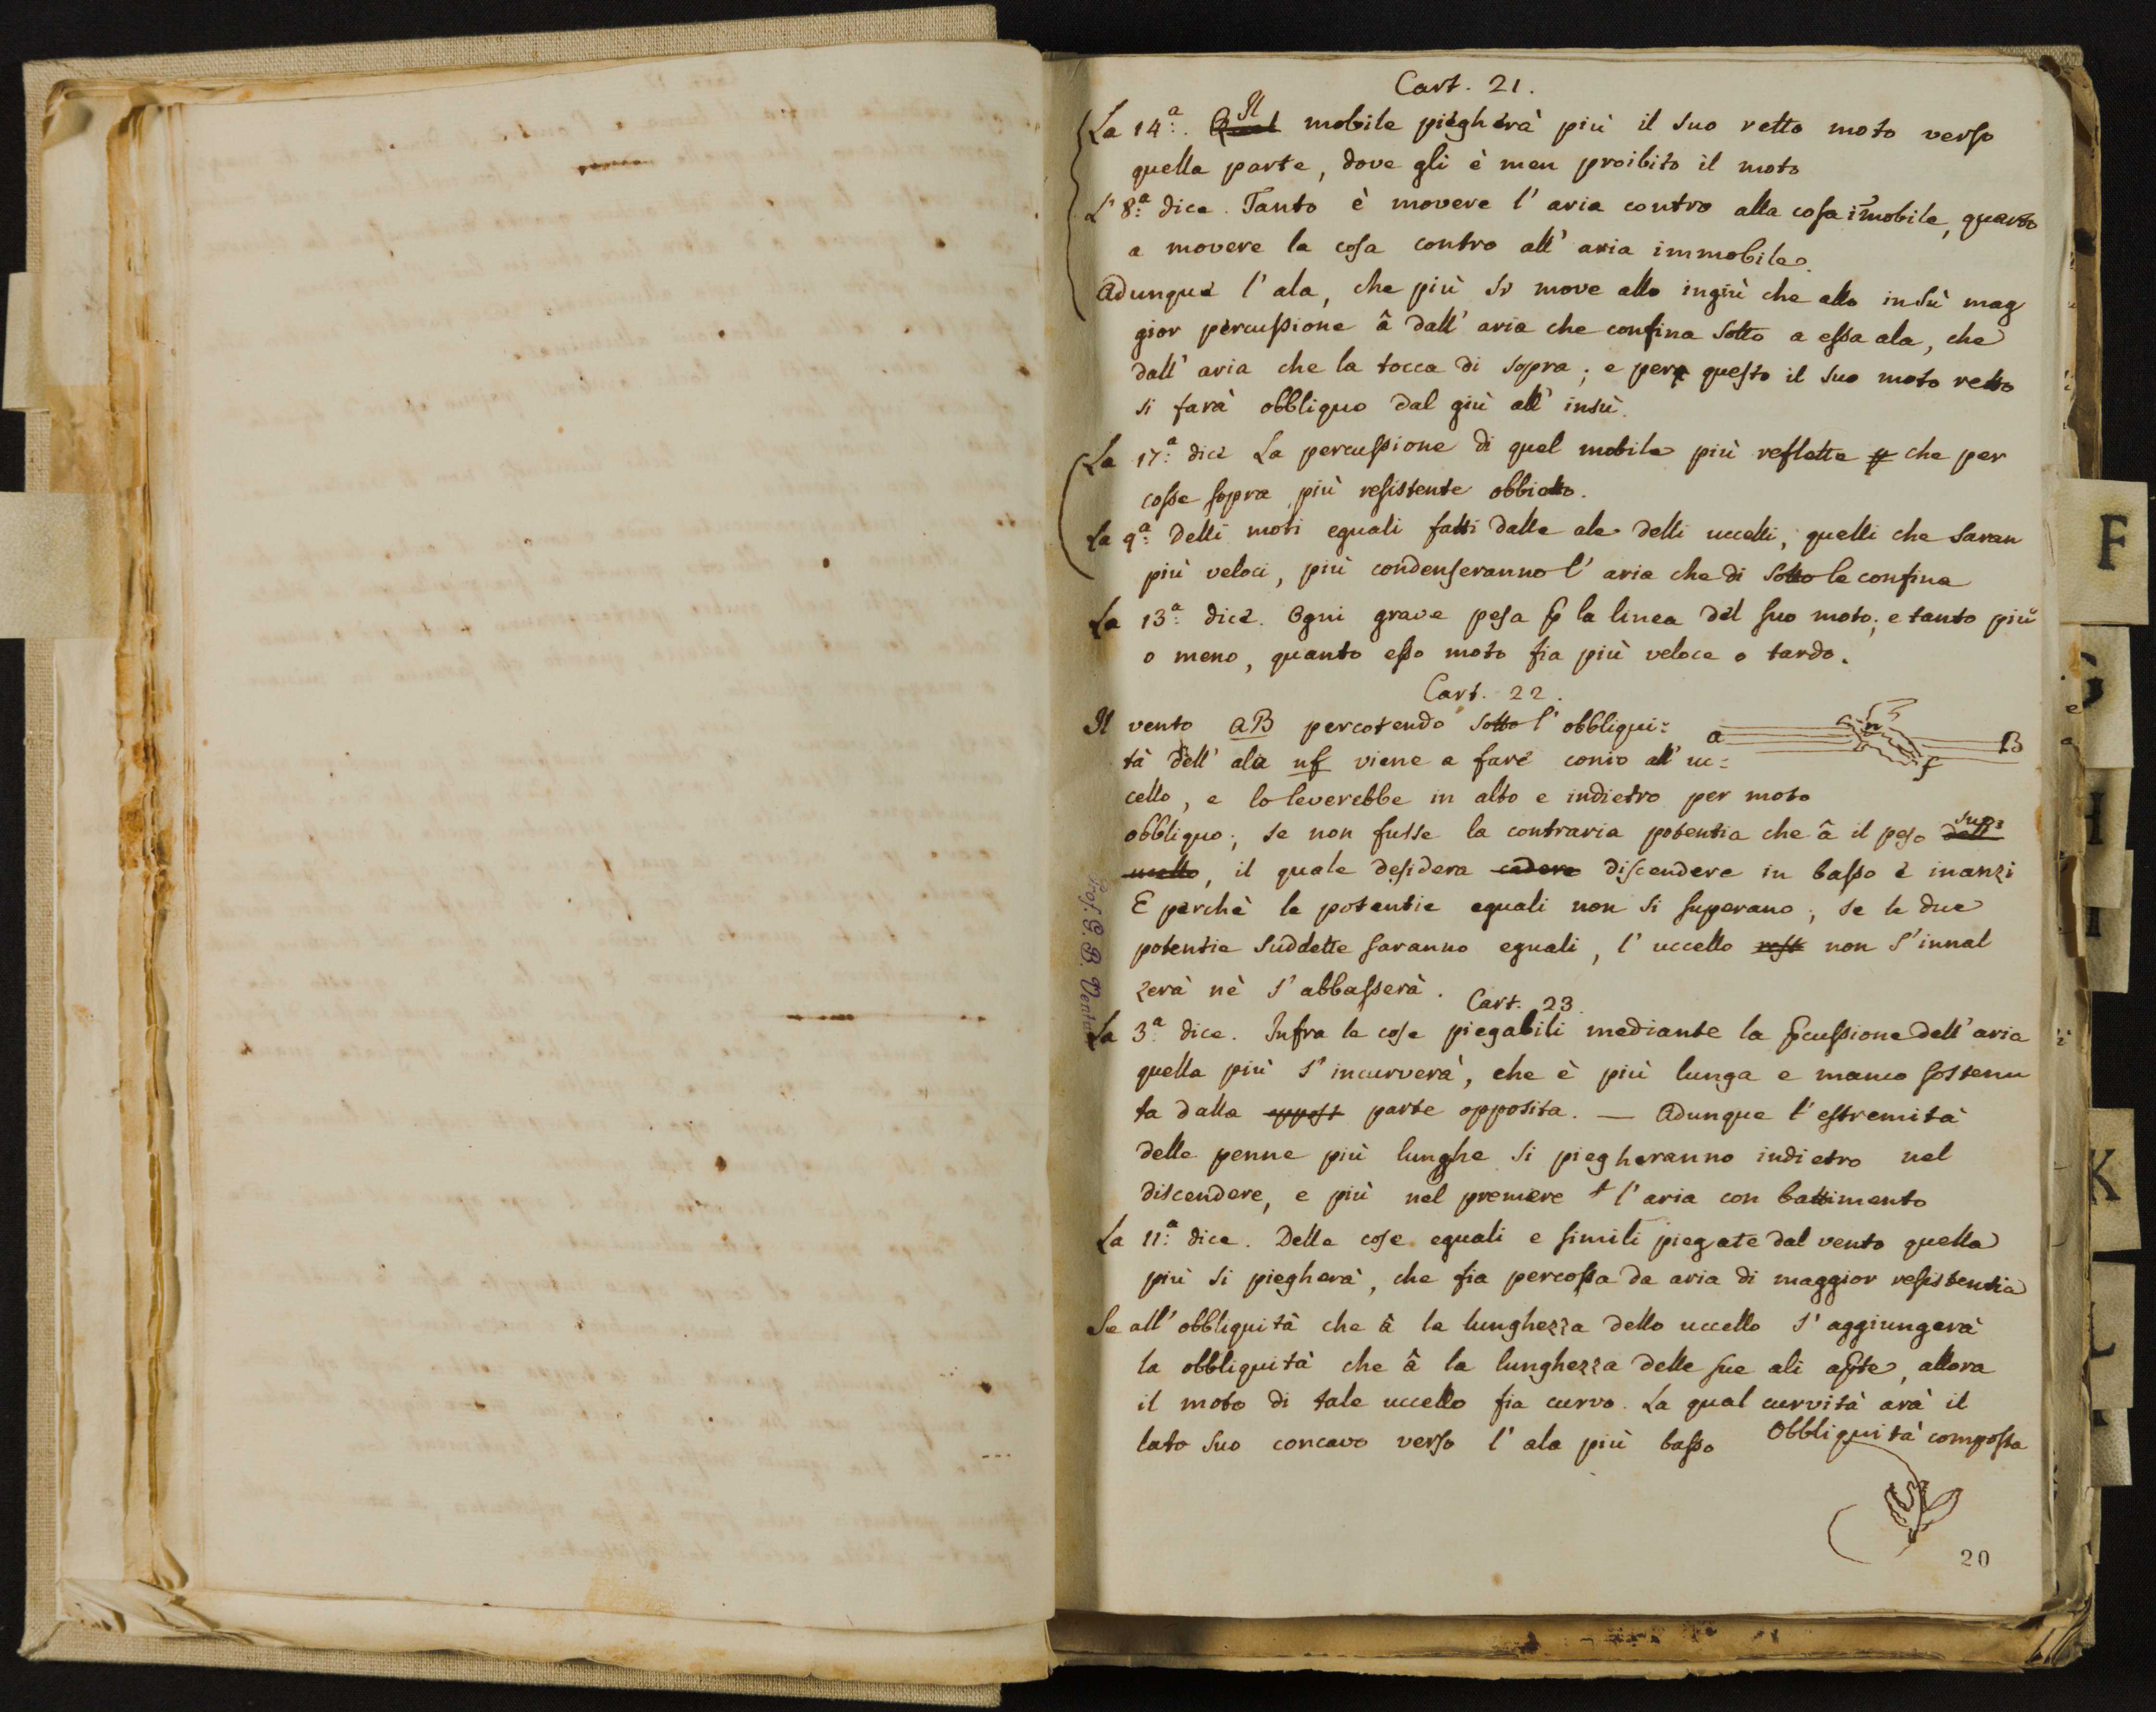 Cart. 21.
La 14.ª Quel Il mobile piegherà più il suo retto moto verso
quella parte, dove gli è men proibito il moto
L' 8.ª dice. Tanto è movere l' aria contro alla cosa im̃obile, quanto
a movere la cosa contro all' aria immobile.
Adunque l' ala, che più si move allo ingiù che allo insù mag
gior percussione â dall' aria che confina sotto a essa ala, che
dall' aria che la tocca di sopra; e per questo il suo moto retto
si farà obbliquo dal giù all' insù.
La 17.ª dice La percussione di quel mobile più reflette che per
cosse sopra più resistente obbietto.
La 9.ª Delli moti eguali fatti dalle ale delli uccelli, quelli che saran
più veloci, più condenseranno l' aria che di sotto le confina
La 13.ª dice. Ogni grave pesa ꝑ la linea del suo moto; e tanto più
o meno, quanto esso moto fia più veloce o tardo.
Cart. 22.
Il vento aB percotendo sotto l' obbliqui=
tà dell' ala nf viene a fare conio all' uc=
cello, e lo leverebbe in alto e indietro per moto
a n B f
obbliquo; se non fusse la contraria potentia che â il peso dell' suo
uccello, il quale desidera cadere discendere in basso e inanzi
E perchè le potentie eguali non si superano; se le due
potentie suddette saranno eguali, l' uccello rest non s' innal
zerà nè s' abbasserà.
Cart. 23.
La 3.ª dice. Infra le cose piegabili mediante la ꝑcussione dell' aria
quella più s' incurverà, che è più lunga e manco sostenu
ta dalla oppost parte opposita. — Adunque l' estremità
delle penne più lunghe si piegheranno indietro nel
discendere, e più nel premere l' aria con battimento
La 11.ª dice. Delle cose eguali e simili piegate dal vento quella
più si piegherà, che fia percossa da aria di maggior resistentia
Se all' obbliquità che â la lunghezza dello uccello s' aggiungerà
la obbliquità che â la lunghezza delle sue ali aꝑte, allora
il moto di tale uccello fia curvo. La qual curvità arà il
lato suo concavo verso l' ala più bassa Obbliquità composta
20
Prof. G. B. Venturi
F
G
H
I
K
L